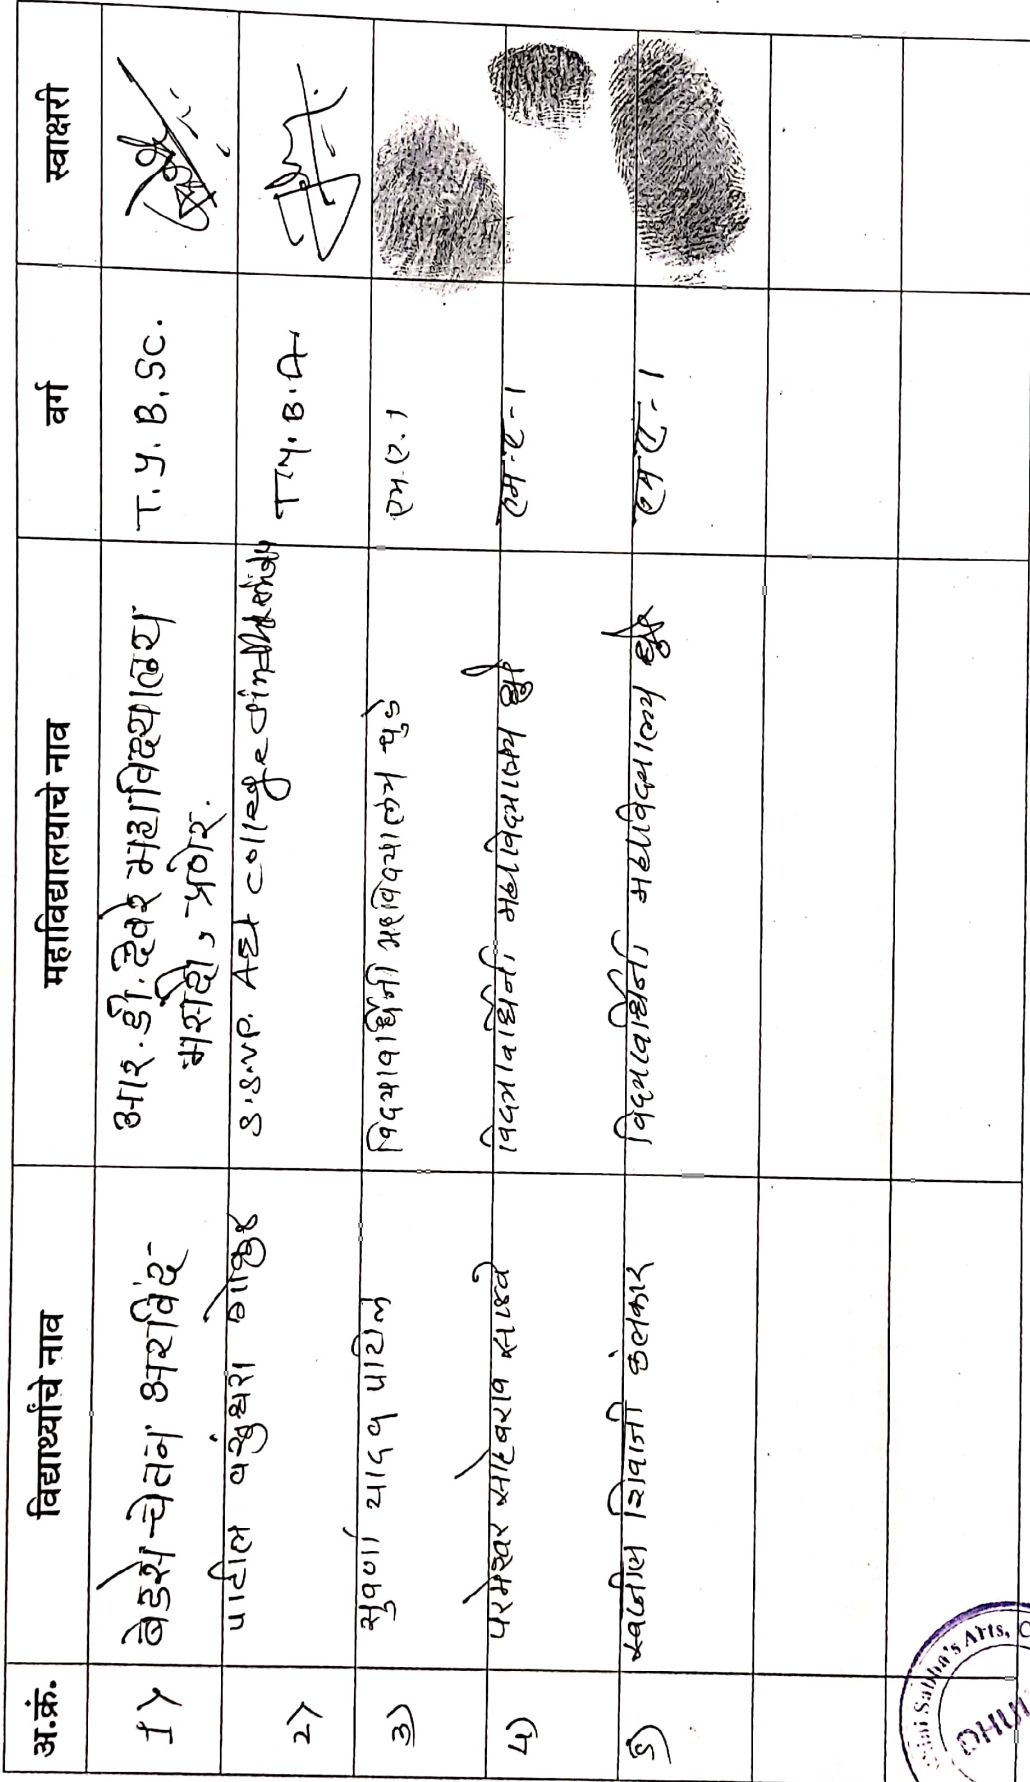 अ.क्रं. विद्यार्थ्यांचे नाव महाविद्यालयाचे नाव वर्ग स्वाक्षरी
1) बेडसे चेतन अरविंद आर. डी. देवरे महाविद्यालय T.Y.B.SC.
म्हसदी, प्रणेर.
2) पाटील वसुंधरा S.S.V.P. College T.Y.B.A
3) सुवर्णा यादव पाटील विद्यावर्धिनी महाविद्यालय धुळे एम.ए.1
4) परमेश्वर साहेबराव साळवे विद्यावर्धिनी महाविद्यालय धुळे एम.ए-1
5) स्वप्नील शिवाजी विद्यावर्धिनी महाविद्यालय धुळे एम.ए.-1
Sabha's Arts, C
DHU